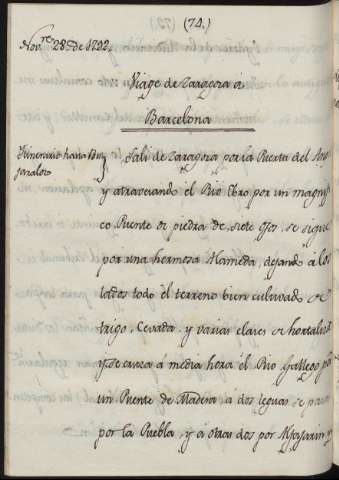 (74.)
Nov.re 28,, de 1792.
Viage de Zaragoza á
Barcelona
Itinerario hasta Buj
jaraloz
Salí de Zaragoza por la Puerta del
y atravesando el Rio Ebro por un magnifi
co Puente de piedra de siete ojos, se sigue
por una hermosa Alameda, dejando á los
lados todo el terreno bien cultivado de
trigo, Cevada, y varias clases de hortaliza
y se cruza á media hora el Rio Gallego por
un Puente de Madera, á dos leguas se pasa
por la Puebla, y á otras dos por Alfajarin y